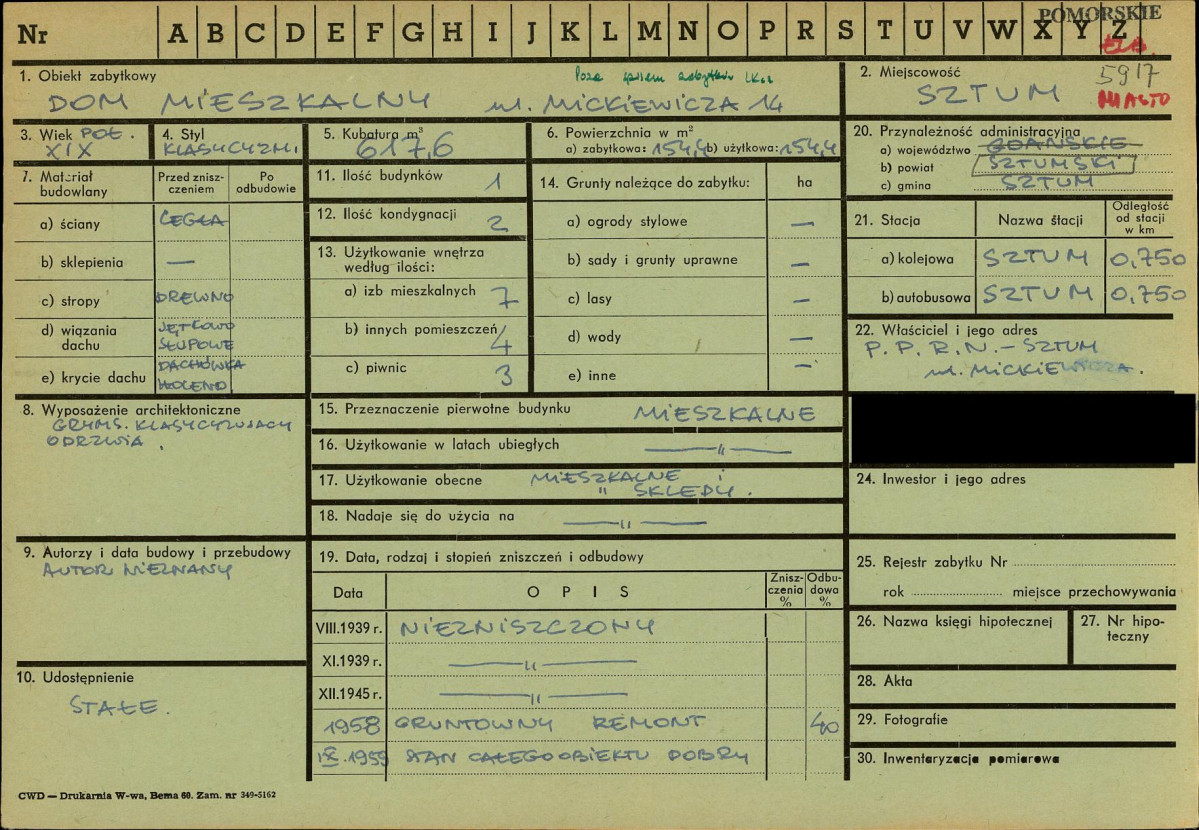 POMORSKIE
Nr A B C D E F G H I J K L M N O P R S T U V W X Y Z
1. Obiekt zabytkowy
DOM MIESZKALNY ul. MICKIEWICZA 14
2. Miejscowość
SZTUM
5917
MIASTO
3. Wiek POŁ.
XIX
4. Styl
KLASYCYZM.
5. Kubatura m³
617,6
6. Powierzchnia w m²
a) zabytkowa: 154,4 b) użytkowa: 154,4
20. Przynależność administracyjna
a) województwo GDAŃSKIE
b) powiat SZTUMSKI
c) gmina SZTUM
7. Materiał budowlany
Przed zniszczeniem
Po odbudowie
a) ściany CEGŁA
b) sklepienia —
c) stropy DREWNO
d) wiązania dachu JĘTKOWO SŁUPOWE
e) krycie dachu DACHÓWKA HOLEND
11. Ilość budynków 1
12. Ilość kondygnacji 2
13. Użytkowanie wnętrza
według ilości:
a) izb mieszkalnych 7
b) innych pomieszczeń 4
c) piwnic 3
14. Grunty należące do zabytku: ha
a) ogrody stylowe —
b) sady i grunty uprawne —
c) lasy —
d) wody —
e) inne —
21. Stacja Nazwa stacji Odległość od stacji w km
a) kolejowa SZTUM 0,750
b) autobusowa SZTUM 0,750
22. Właściciel i jego adres
P. P. R. N. – SZTUM
ul. MICKIEWICZA.
8. Wyposażenie architektoniczne
GRYMS. KLASYCYZUJĄCY
ODRZWIA.
15. Przeznaczenie pierwotne budynku MIESZKALNE
16. Użytkowanie w latach ubiegłych —"—
17. Użytkowanie obecne MIESZKALNE i
" SKLEPY.
18. Nadaje się do użycia na —"—
24. Inwestor i jego adres
9. Autorzy i data budowy i przebudowy
AUTOR NIEZNANY
19. Data, rodzaj i stopień zniszczeń i odbudowy
Data OPIS Zniszczenia % Odbudowa %
VIII.1939 r. NIEZNISZCZONY
XI.1939 r. —"—
XII.1945 r. —"—
1958 GRUNTOWNY REMONT 40
IX.1959 STAN CAŁEGO OBIEKTU DOBRY
25. Rejestr zabytku Nr
rok miejsce przechowywania
26. Nazwa księgi hipotecznej
27. Nr hipoteczny
10. Udostępnienie
STAŁE.
28. Akta
29. Fotografie
30. Inwentaryzacja pomiarowa
CWD — Drukarnia W-wa, Bema 60. Zam. nr 349-5162